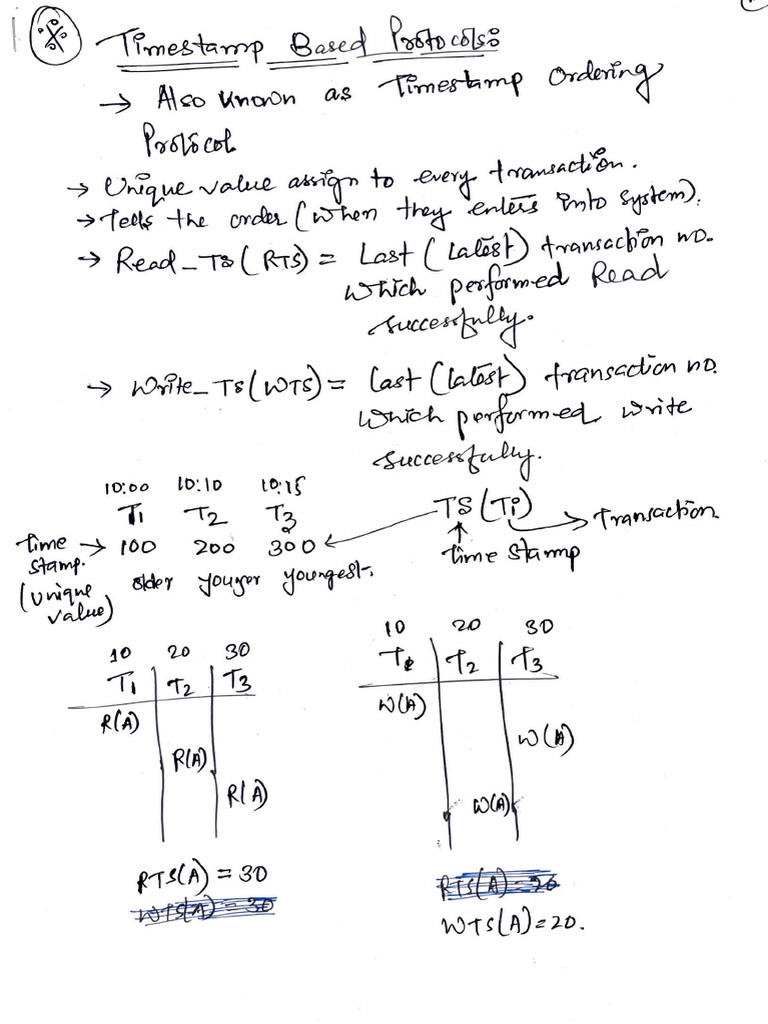 Timestamp Based Protocols:
→ Also known as Timestamp Ordering
Protocol
→ Unique value assign to every transaction.
→ Tells the order (when they enters into system).
→ Read_TS(RTS) = Last (Latest) transaction no.
which performed Read
successfully.
→ Write_TS(WTS) = Last (latest) transaction no.
which performed write
successfully.
10:00 10:10 10:15
T1 T2 T3
TS(Ti) → Transaction
Time stamp. → 100 200 300 ←
time stamp
(unique value) older youger youngest.
10 20 30
T1 T2 T3
R(A)
R(A)
R(A)
RTS(A) = 30
WTS(A) = 30
10 20 30
T1 T2 T3
W(A)
W(A)
W(A)
RTS(A) = 20
WTS(A) = 20.